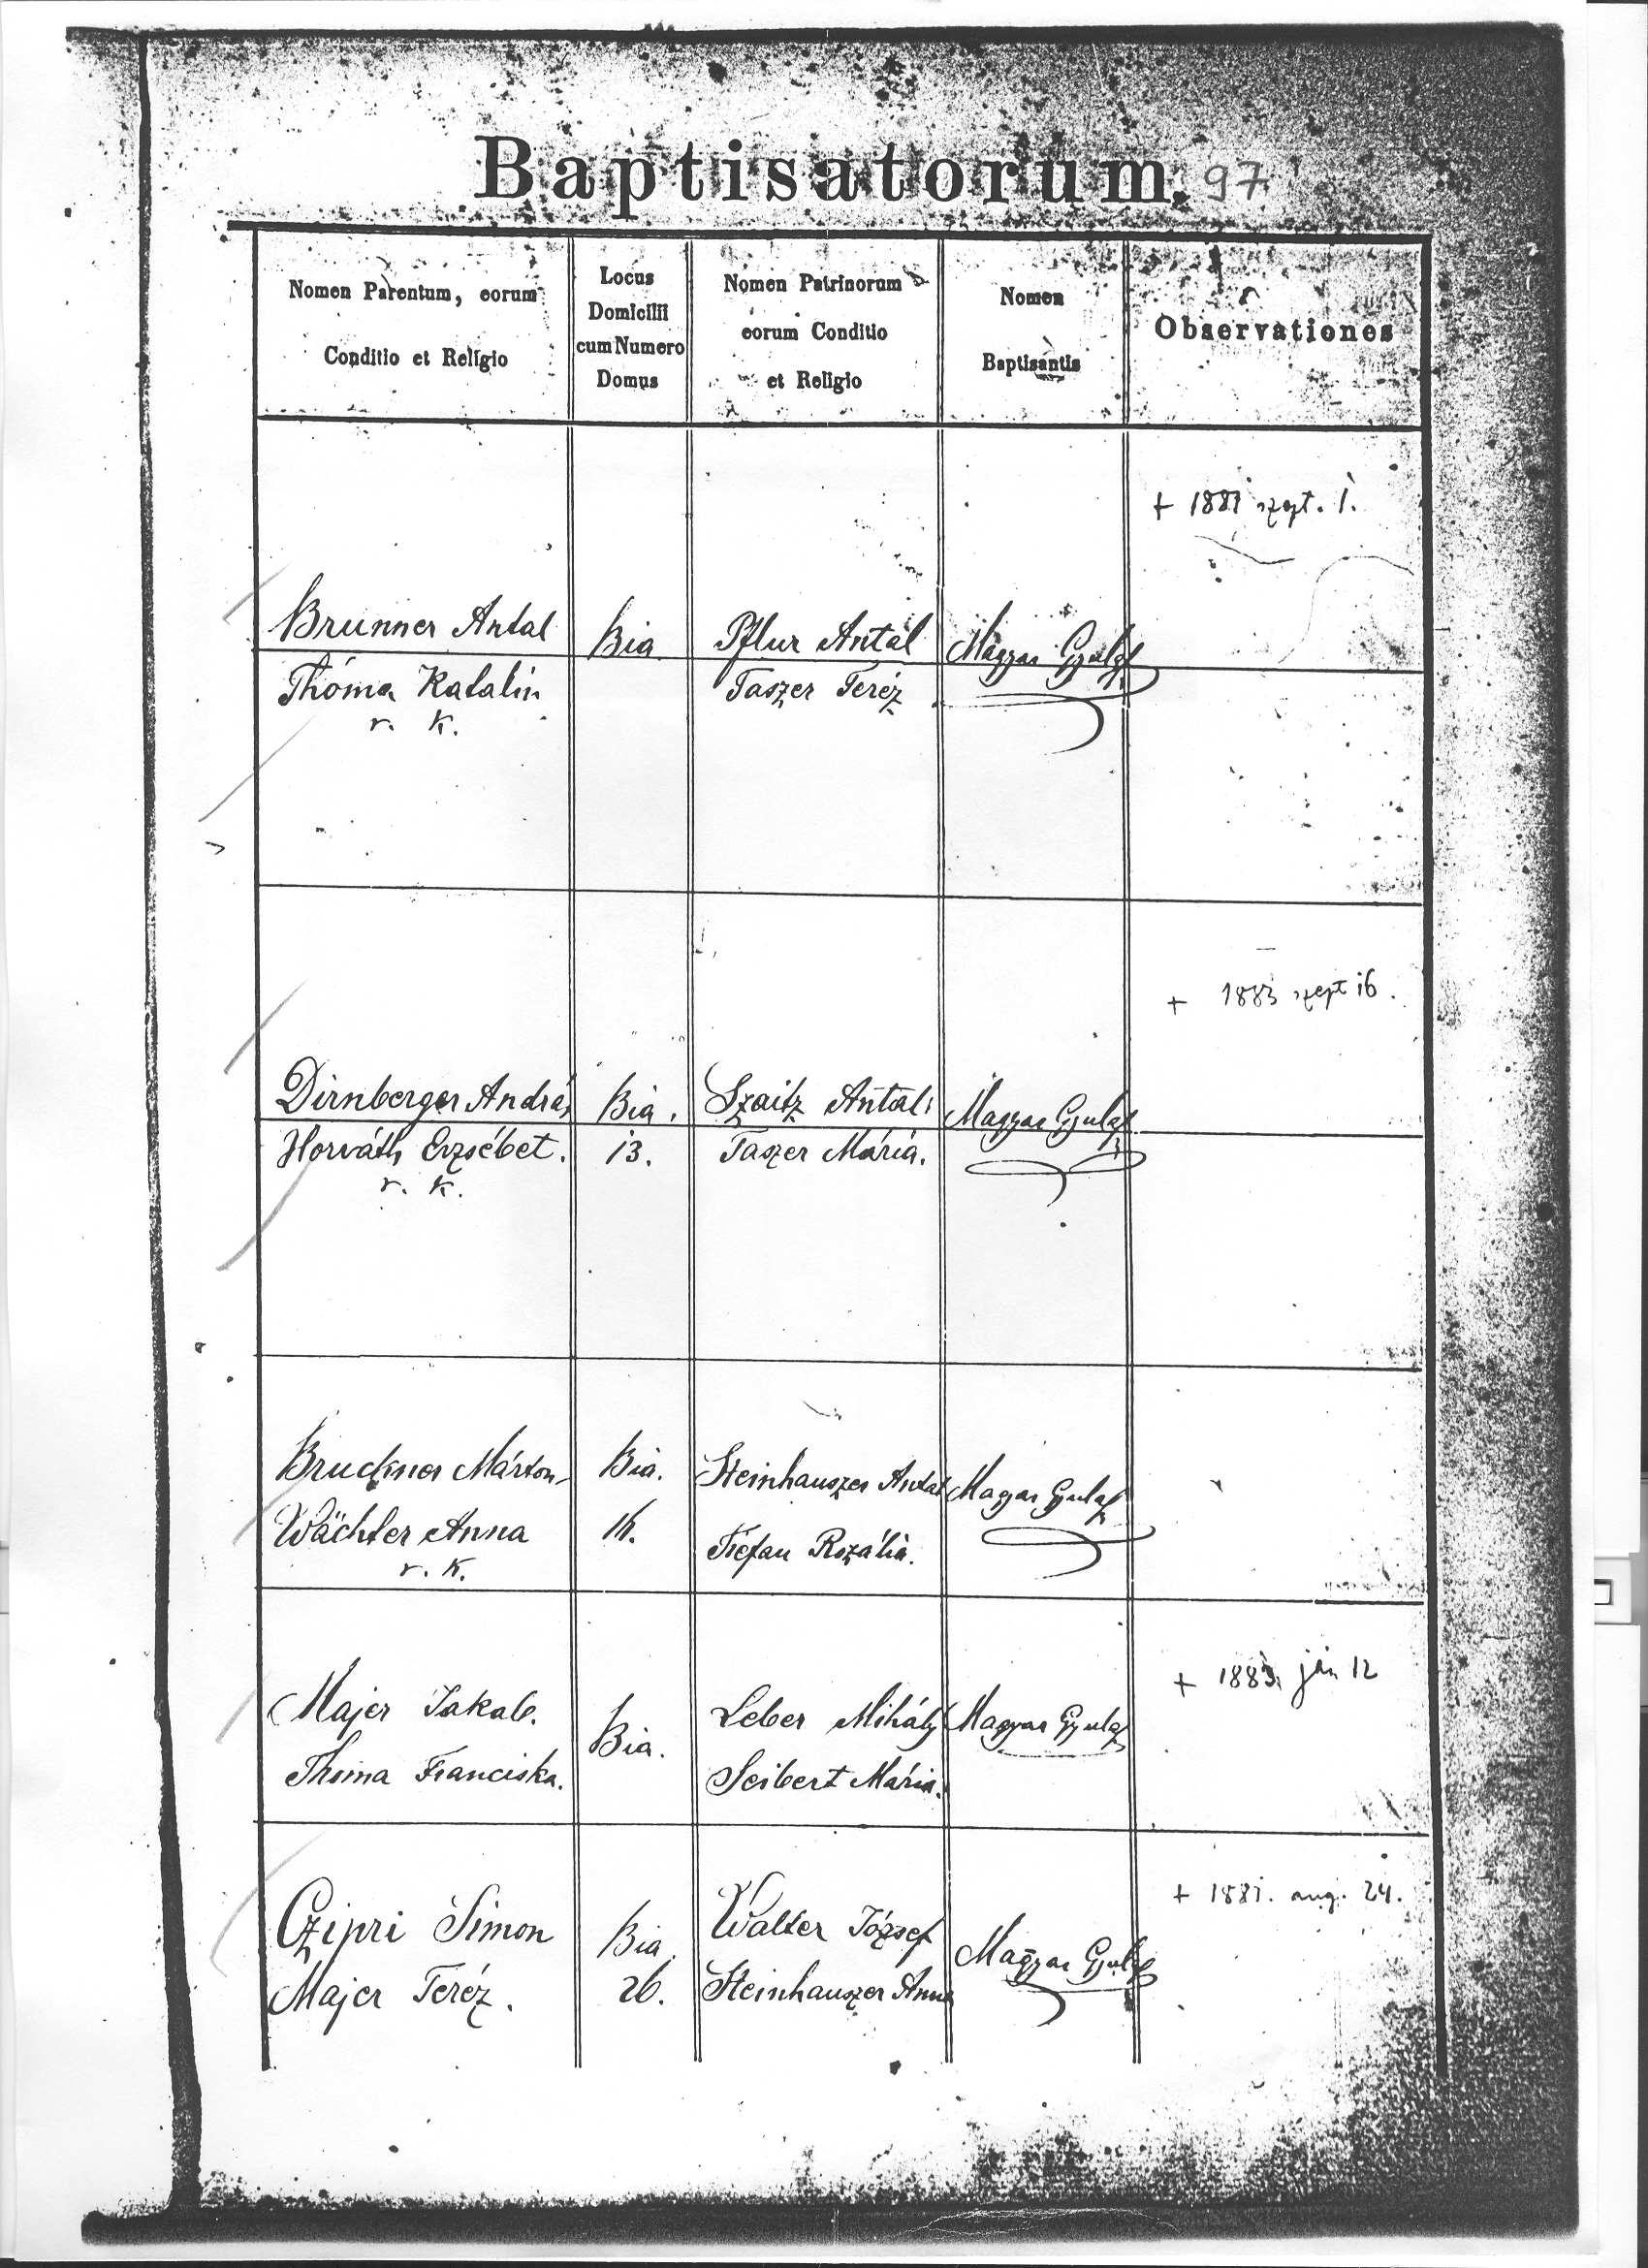 Baptisatorum. 97
Nomen Parentum, eorum
Conditio et Religio
Locus
Domicilii
cum Numero
Domus
Nomen Patrinorum
eorum Conditio
et Religio
Nomen
Baptisantis
Observationes
+ 1881 szept. 1.
Brunner Antal
Thóma Katalin
r. k.
Bia
Pflur Antal
Taszer Teréz
Magyar Gyula
+ 1883 szept 16.
Dirnberger András
Horváth Erzsébet.
r. k.
Bia.
13.
Szaitz Antal
Taszer Mária.
Magyar Gyula
Bruckner Márton
Wächter Anna
r. k.
Bia.
Steinhauszer Antal
Stefan Rozália.
Magyar Gyula
+ 1883 ján 12
Majer Jakab.
Thoma Franciska.
Bia.
Leber Mihály
Seibert Mária.
Magyar Gyula
+ 1881. aug. 24.
Czipri Simon
Majer Teréz.
Bia.
26.
Walter József
Steinhauszer Anna
Magyar Gyula